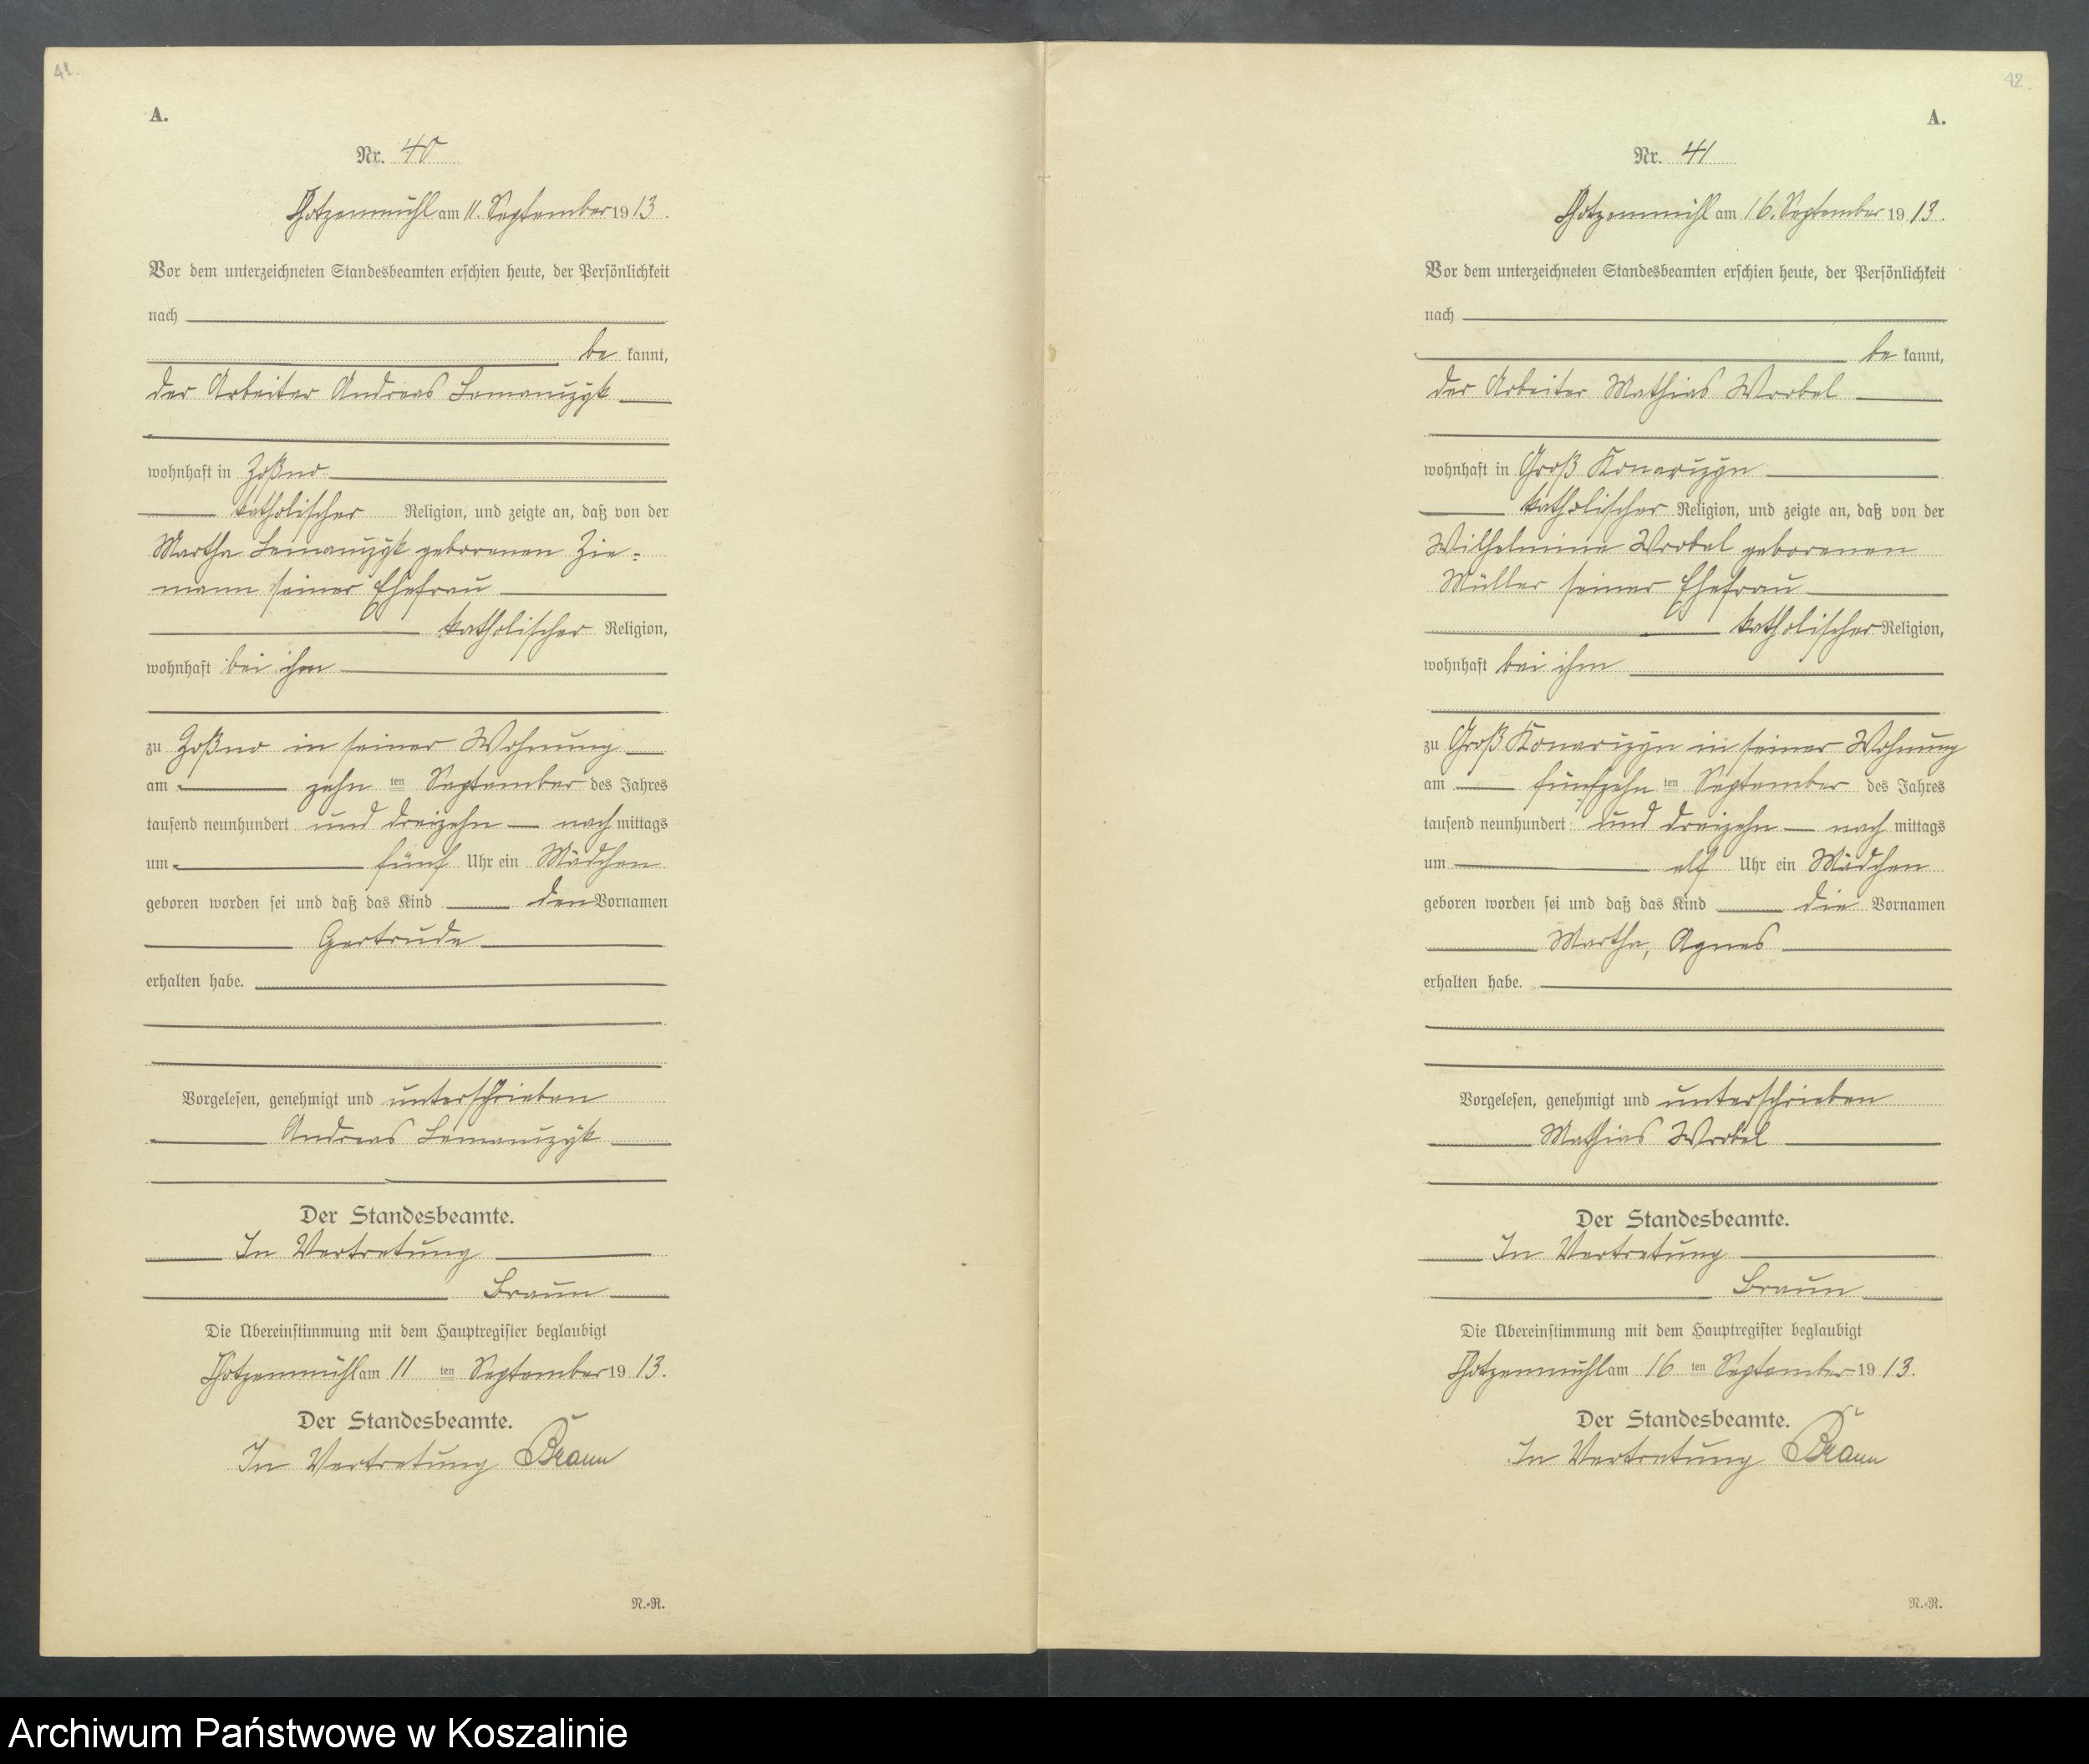 41.
A.
Nr. 40
Schotzenmühl am 11. September 1913.
Vor dem unterzeichneten Standesbeamten erschien heute, der Persönlichkeit
nach
be kannt,
der Arbeiter Andreas Lemanczyk
wohnhaft in
katholischer Religion, und zeigte an, daß von der
Martha Lemanczyk geborenen Zie-
mann seiner Ehefrau
katholischer Religion,
wohnhaft bei ihm
zu in seiner Wohnung
am zehn ten September des Jahres
tausend neunhundert und dreizehn nach mittags
um fünf Uhr ein Mädchen
geboren worden sei und daß das Kind den Vornamen
Gertrude
erhalten habe.
Vorgelesen, genehmigt und unterschrieben
Andreas Lemanczyk
Der Standesbeamte.
In Vertretung
Braun
Die Übereinstimmung mit dem Hauptregister beglaubigt
Schotzenmühl am 11 ten September 1913.
Der Standesbeamte.
In Vertretung Braun
N.-R.
42.
A.
Nr. 41
Schotzenmühl am 16. September 1913.
Vor dem unterzeichneten Standesbeamten erschien heute, der Persönlichkeit
nach
be kannt,
der Arbeiter Mathias Wrobel
wohnhaft in Groß Konarczyn
katholischer Religion, und zeigte an, daß von der
Wilhelmine Wrobel geborenen
Müller seiner Ehefrau
katholischer Religion,
wohnhaft bei ihm
zu Groß Konarczyn in seiner Wohnung
am fünfzehn ten September des Jahres
tausend neunhundert und dreizehn nach mittags
um elf Uhr ein Mädchen
geboren worden sei und daß das Kind die Vornamen
Martha, Agnes
erhalten habe.
Vorgelesen, genehmigt und unterschrieben
Mathias Wrobel
Der Standesbeamte.
In Vertretung
Braun
Die Übereinstimmung mit dem Hauptregister beglaubigt
Schotzenmühl am 16 ten September 1913.
Der Standesbeamte.
In Vertretung Braun
N.-R.
Archiwum Państwowe w Koszalinie